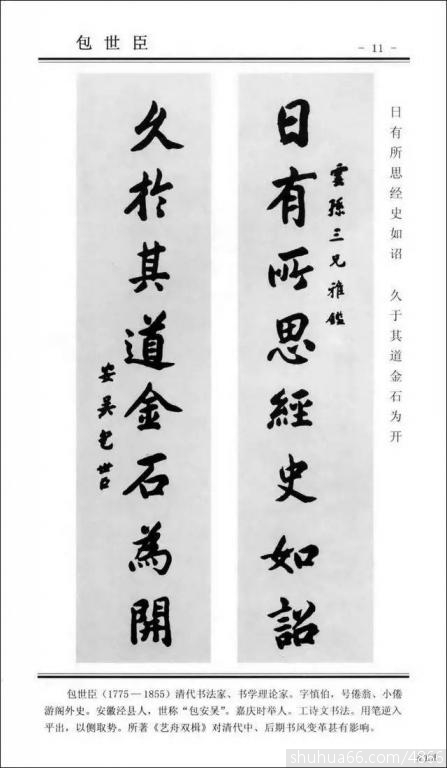 包世臣
- 11 -
日有所思经史如诏 久于其道金石为开
雲孫三兄雅鑑
日有所思經史如詔
久於其道金石為開
安吴包世臣
包世臣（1775—1855）清代书法家、书学理论家。字慎伯，号倦翁、小倦
游阁外史。安徽泾县人，世称“包安吴”。嘉庆时举人。工诗文书法。用笔逆入
平出，以侧取势。所著《艺舟双楫》对清代中、后期书风变革甚有影响。